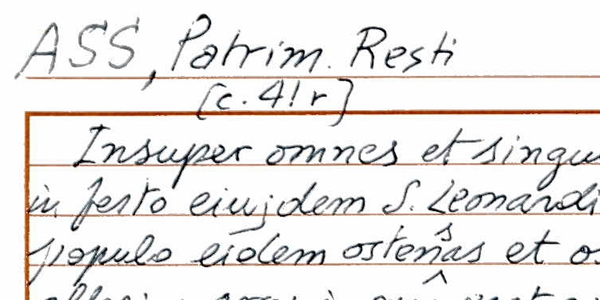 ASS, Patrim. Resti
[c. 41r]
Insuper omnes et singu
in festo eiusdem S. Leonardi
populo eidem ostensas et os